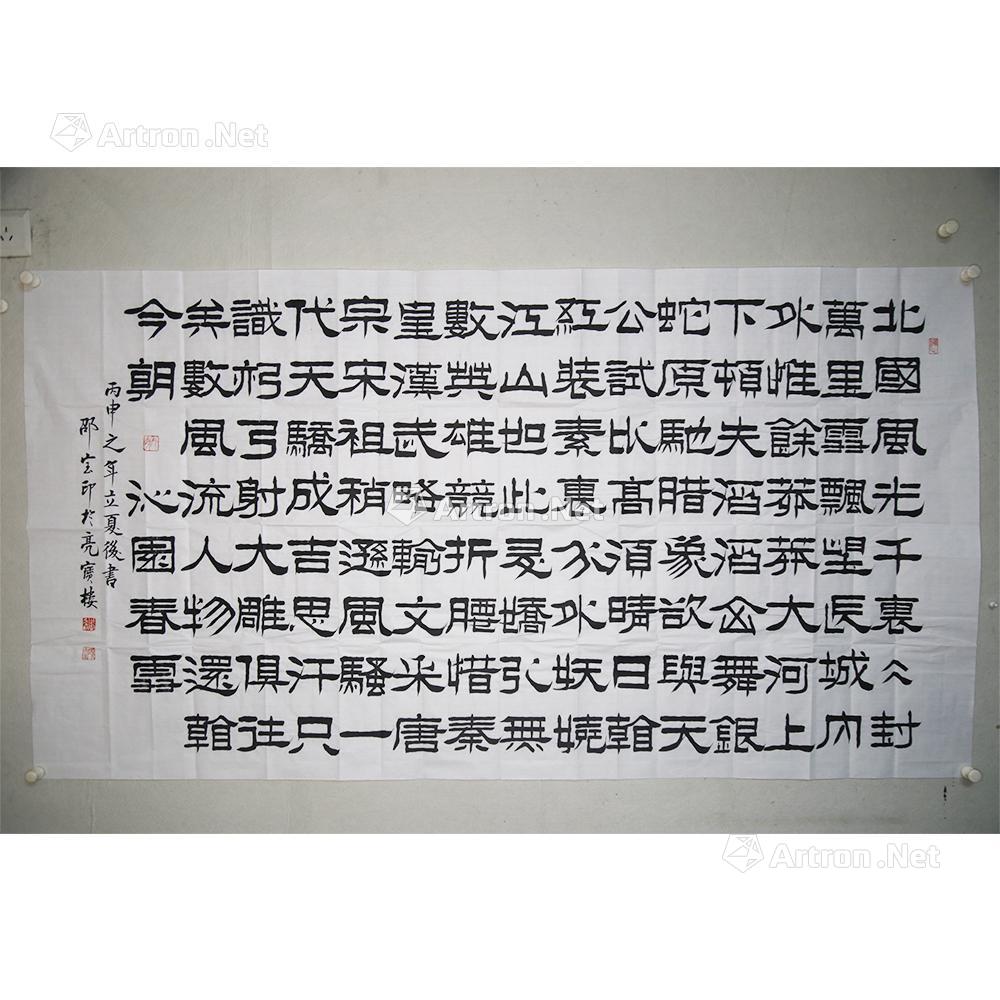 北國風光千裏仌封
萬里雪飄望長城內
外惟餘莽莽大河上
下頓失滔滔山舞銀
蛇原馳腊象欲與天
公試比高須晴日看
紅裝素裏分外妖嬈
江山如此多嬌引無
數英雄競折腰惜秦
皇漢武略輸文采唐
宗宋祖稍遜風騷一
代天驕成吉思汗只
識弓射大雕俱往
矣數風流人物還看
今朝 沁園春雪
丙申之年立夏後書
邵宝印於亮寶樓
Artron.Net
Artron.Net
Artron.Net
Artron.Net